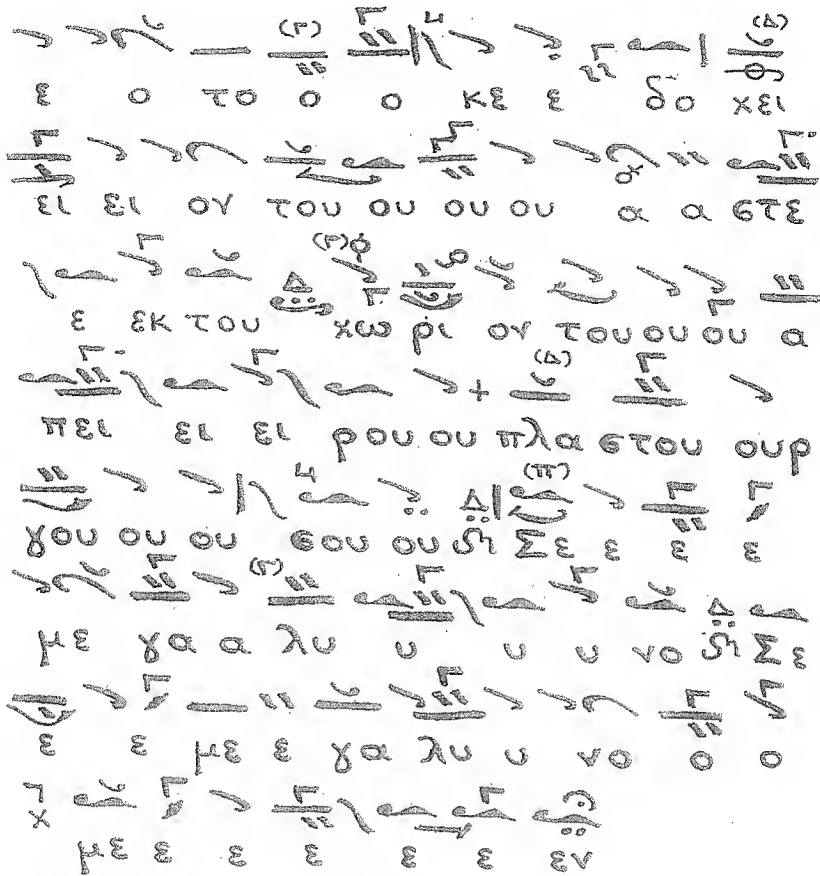 ε ο το ο ο κε ε δο χει
ει ει ον του ου ου ου α α στε
ε εκ του χω ρι ον του ου ου α
πει ει ει ρου ου πλα στου ουρ
γου ου ου σου ου Σε ε ε ε
με γα α λυ υ υ υ νο Σε
ε ε με ε γα λυ υ νο ο ο
με ε ε ε ε ε εν